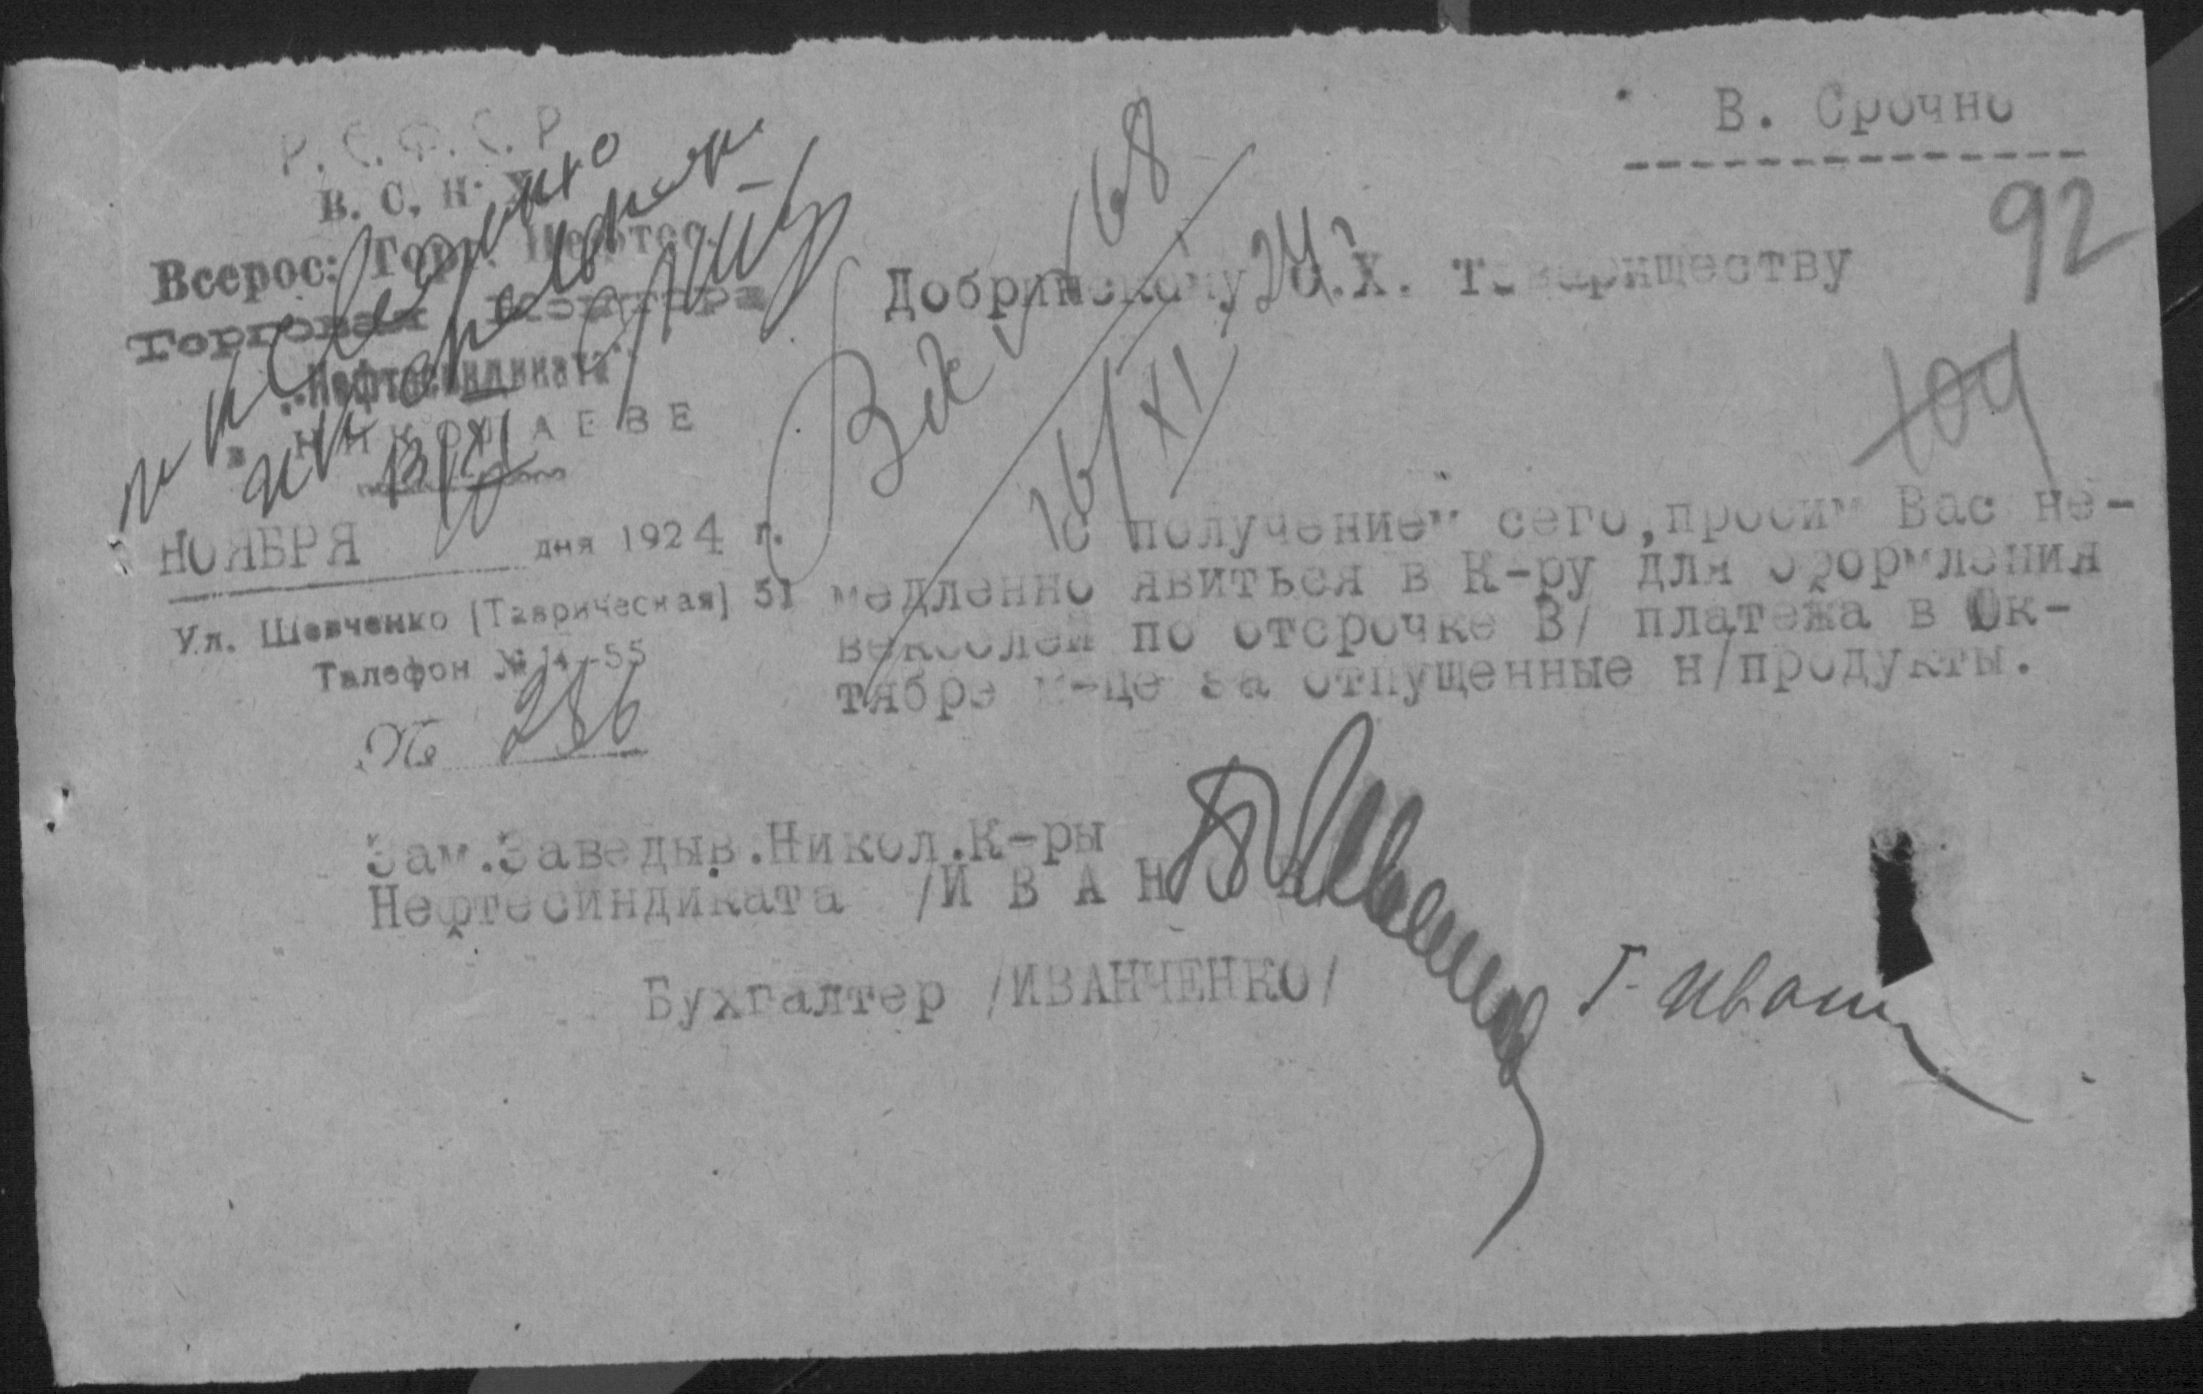 В. Срочно
92
Р.С.Ф.С.Р
В. С. Н. Х.
Всерос: Торг.
Торговая Контора
"Нефтесиндиката"
в НИКОЛАЕВЕ
13/XI
НОЯБРЯ дня 1924 г.
Ул. Шевченко [Таврическая] 51
Талефон № 14-55
№ 286
168
16/XI 24
Добринскому С.Х. Товариществу
104
С получением сего, просим Вас не-
медленно явиться в К-ру для оформления
векселей по отсрочке В/ платежа в Ок-
тябре м-це за отпущенные н/продукты.
Зам.Заведыв.Никол.К-ры
Нефтесиндиката /И В А Н О В/
Бухгалтер /ИВАНЧЕНКО/